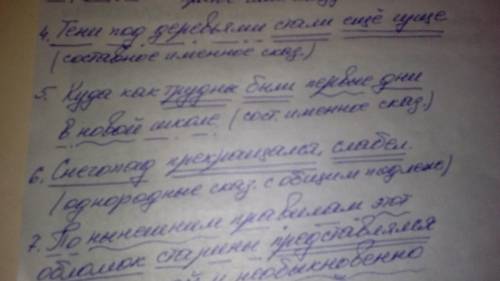 4. Тени под деревьями стали ещё гуще
(составное именное сказ.)
5. Куда как трудны были первые дни
в новой школе. (сост. именное сказ.)
6. Снегопад прекращался, слабел.
(однородные сказ. с общим подлеж.)
7. По нынешним правилам этот
обломок старины представлялся
и необыкновенно